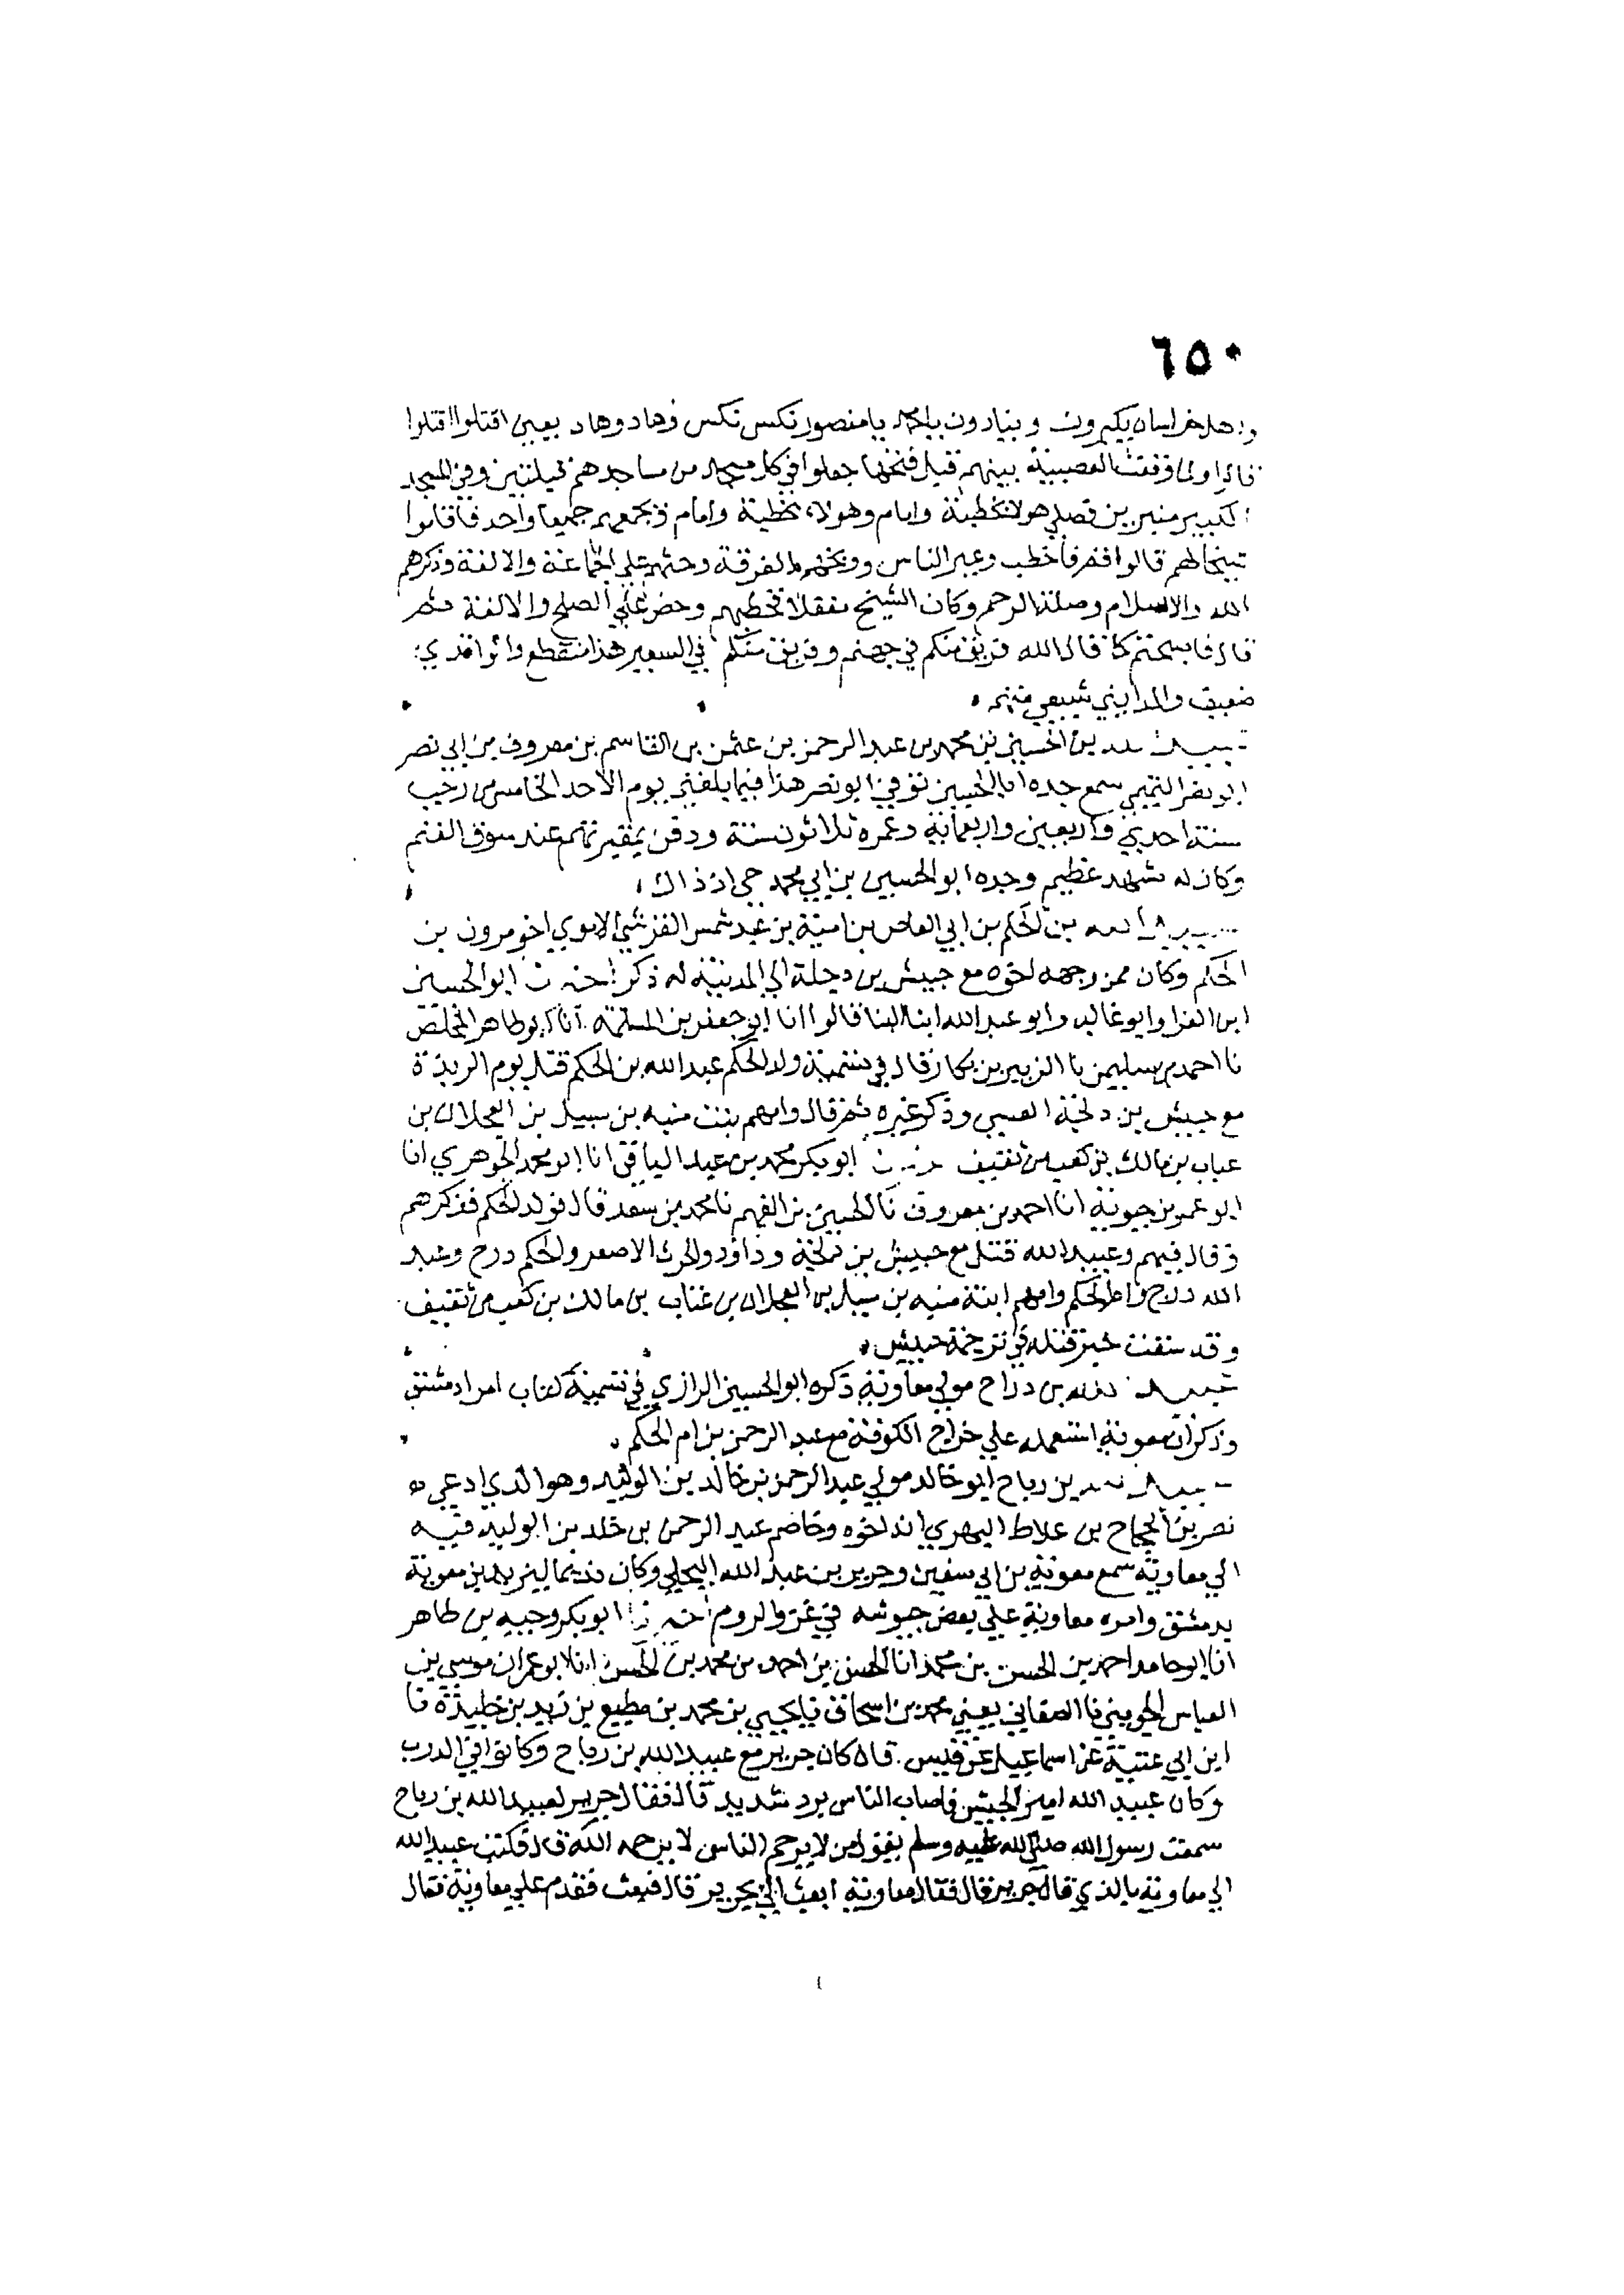 ٦٥٠
واهل خراسان يكبرون وينادون يا محمد يا منصور نكس نكس وهاد وهاد يعني اقتلوا اقتلوا
قالوا ولما وقعت العصبية بينهم قبل فتحها جعلوا في كل مسجد من مساجدهم قبلتين وفي المسجد
الكبير منبرين فصلى هولا بخطبة وامام وهولاء بخطبة وامام فجمعهم جميعا واحد فاقاموا
شيخا لهم قالوا قم فاخطب وعير الناس ووبخهم بالفرقة وحثهم على الجماعة والالفة وذكرهم
الله والاسلام وصلة الرحم وكان الشيخ مغفلا فخطبهم وحض على الصلح والالفة ثم
قال فاصبحتم كما قال الله فريق منكم في جهنم وفريق منكم في السعير هذا منقطع والواقدي
ضعيف والمدايني شيعي متهم
عبيد الله بن الحسين بن محمد بن عبد الرحمن بن عثمن بن القاسم بن معروف بن ابي نصر
ابو نصر التميمي سمع جده ابا الحسين توفي ابو نصر هذا فيما بلغني يوم الاحد الخامس من رجب
سنة احدي واربعين واربعماية وعمره ثلاثون سنة ودفن بمقبرتهم عند سوق الغنم
وكان له مشهد عظيم وجده ابو الحسين بن ابي محمد حي اذ ذاك
عبيد الله بن الحكم بن ابي العاص بن امية بن عبد شمس القرشي الاموي اخو مرون بن
الحكم وكان ممن وجهه اخوه مع حبيش بن دجلة الي المدينة له ذكر اخبرنا ابو الحسين
ابن الفرا وابو غالب وابو عبد الله ابنا البنا قالوا انا ابو جعفر بن المسلمة انا ابو طاهر المخلص
نا احمد بن سليمن نا الزبير بن بكار قال في تسمية ولد الحكم عبد الله بن الحكم قتل يوم الربذة
مع حبيش بن دلجة القيسي وذكر غيره ثم قال وامهم بنت منبه بن سبيل بن العجلان بن
عباب بن مالك بن كعب من ثقيف اخبرنا ابو بكر محمد بن عبد الباقي انا ابو محمد الجوهري انا
ابو عمر بن حيوية انا احمد بن معروف نا الحسين بن الفهم نا محمد بن سعد قال فولد الحكم فذكرهم
وقال فيهم وعبيد الله قتل مع حبيش بن دلجة وداود والحرث الاصغر والحكم درج وعبد
الله درج وام الحكم وامهم ابنة منبه بن سبيل بن العجلان بن عتاب بن مالك بن كعب من ثقيف
وقد سقت خبر قتله في ترجمة حبيش
عبيد الله بن دراج مولي معاوية ذكره ابو الحسين الرازي في تسمية كتاب امرا دمشق
وذكر ان معوية استعمله علي خراج الكوفة مع عبد الرحمن بن ام الحكم
عبيد الله بن رباح ابو خالد مولي عبد الرحمن بن خالد بن الوليد وهو الذي ادعي
نصر بن الحجاج بن علاط البهري انه اخوه وخاصم عبد الرحمن بن خلد بن الوليد فيه
الي معاوية سمع معوية بن ابي سفين وجرير بن عبد الله البجلي وكان نديما ليزيد بن معوية
بدمشق وامره معاوية علي بعض جيوشه في غزو الروم اخبرنا ابو بكر وجيه بن طاهر
انا ابو حامد احمد بن الحسن بن محمد انا الحسن بن احمد بن محمد بن الحسن انا ابو عمران موسي بن
العباس الجويني نا الصغاني يعني محمد بن اسحاق نا يحيي بن محمد بن مطيع بن زيد بن خليدة نا
ابن ابي عتبة عن اسماعيل عن قيس قال كان جرير مع عبيد الله بن رباح وكانوا في الدرب
وكان عبيد الله امير الجيش فاصاب الناس برد شديد قال فقال جرير لعبيد الله بن رباح
سمعت رسول الله صلى الله عليه وسلم يقول من لا يرحم الناس لا يرحمه الله قال فكتب عبيد الله
الي معاوية بالذي قال جرير قال فقال معاوية ابعث الي بجرير قال فبعث فقدم علي معاوية فقال